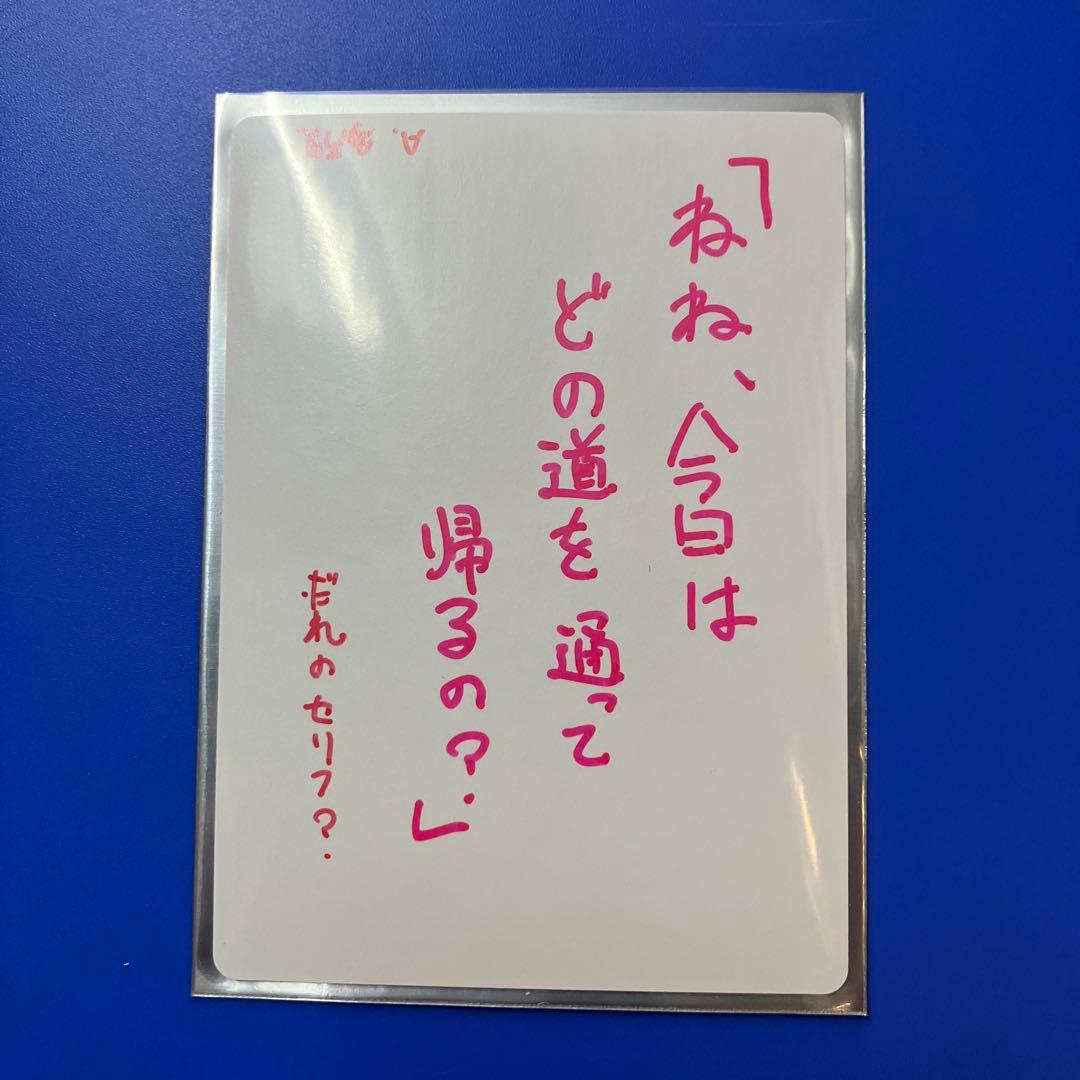 「ねね、今日は
どの道を通って
帰るの？」
だれのセリフ？
A.